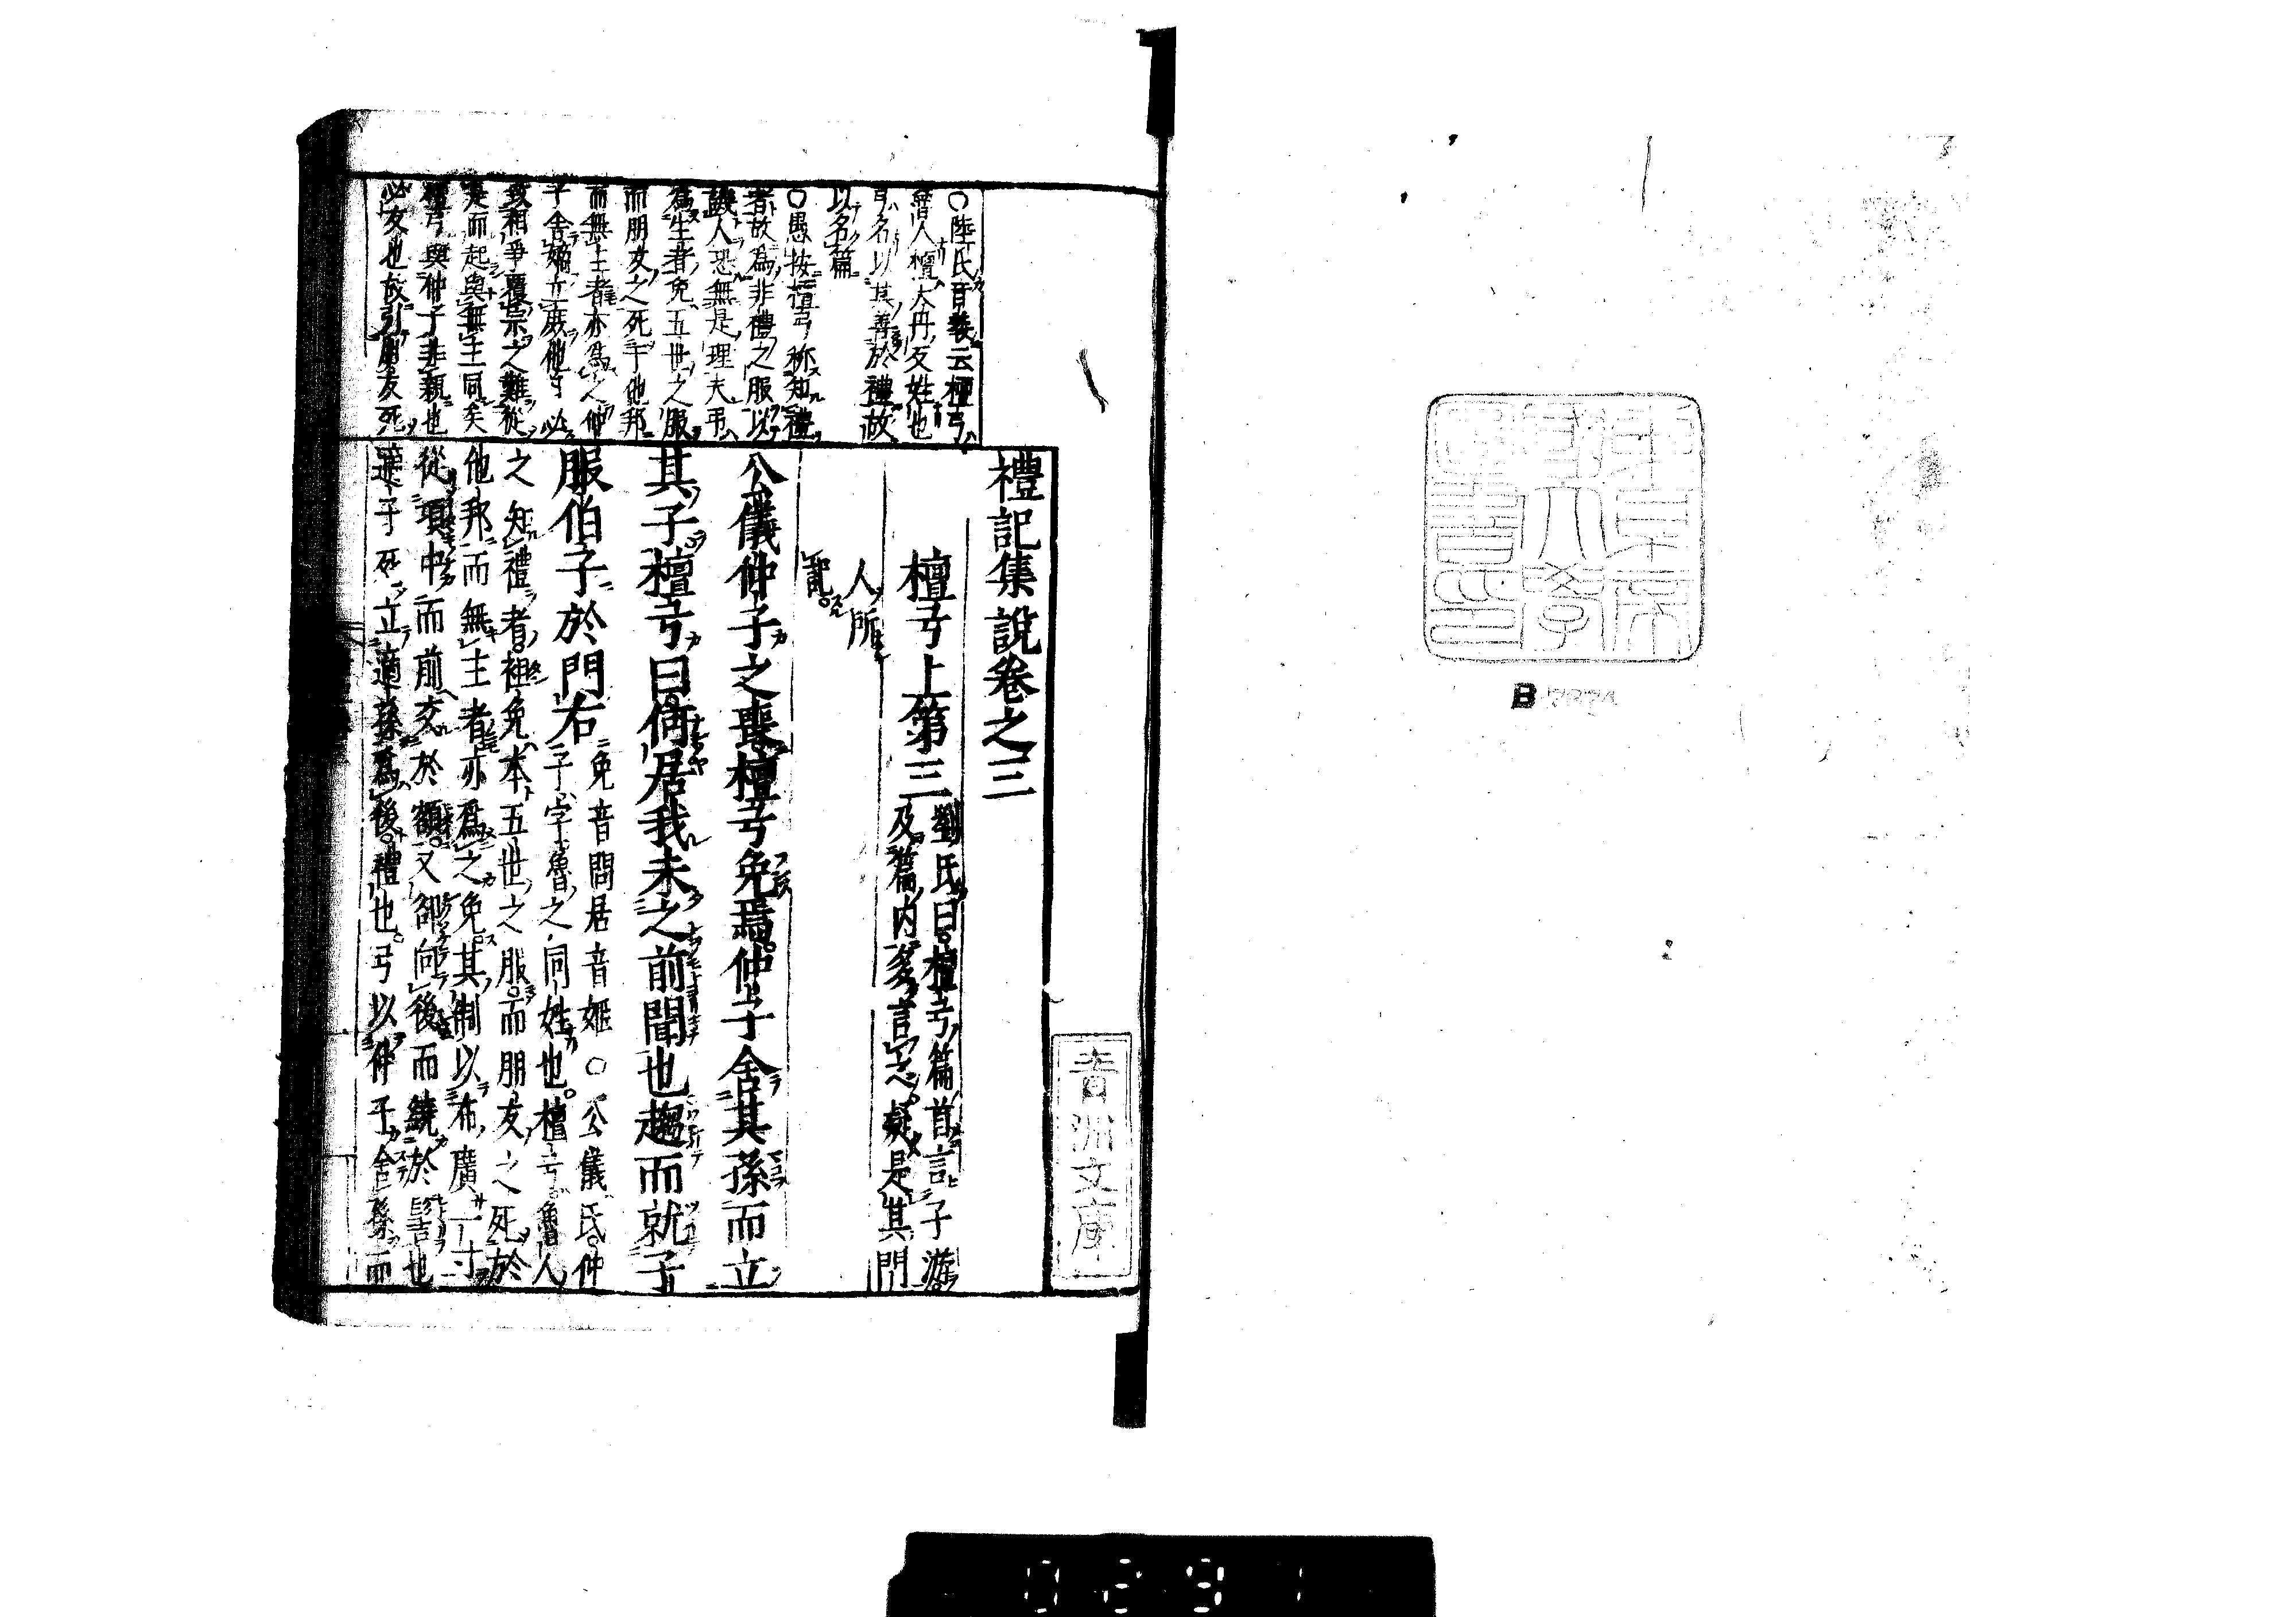 東京帝
國大學
圖書印
青洲文庫
禮記集說卷之三
檀弓上第三
劉氏曰檀弓篇首言子游
及篇內多言之疑是其門
人所
記
公儀仲子之喪檀弓免焉仲子舍其孫而立
其子檀弓曰何居我未之前聞也趨而就子
服伯子於門右
免音問居音姬○公儀氏仲
子字魯之同姓也檀弓魯人
之知禮者袒免本五世之服而朋友之死於
他邦而無主者亦爲之免其制以布廣一寸
從項中而前交於額又卻向後而繞於髻也
適子死立適孫爲後禮也弓以仲子舍孫而
○陸氏音義云檀弓
魯人檀大丹反姓也
弓名以其善於禮故
以名篇
○愚按檀弓称知禮
者故為非禮之服以
譏人恐無是理夫弔
為生者免五世之服
而朋友之死于他邦
而無主者亦為之仲
子舍嫡立庶他日必
致相爭覆宗之難從
是而起與無主同矣
檀弓與仲子非親也
必友也故引朋友死
0291